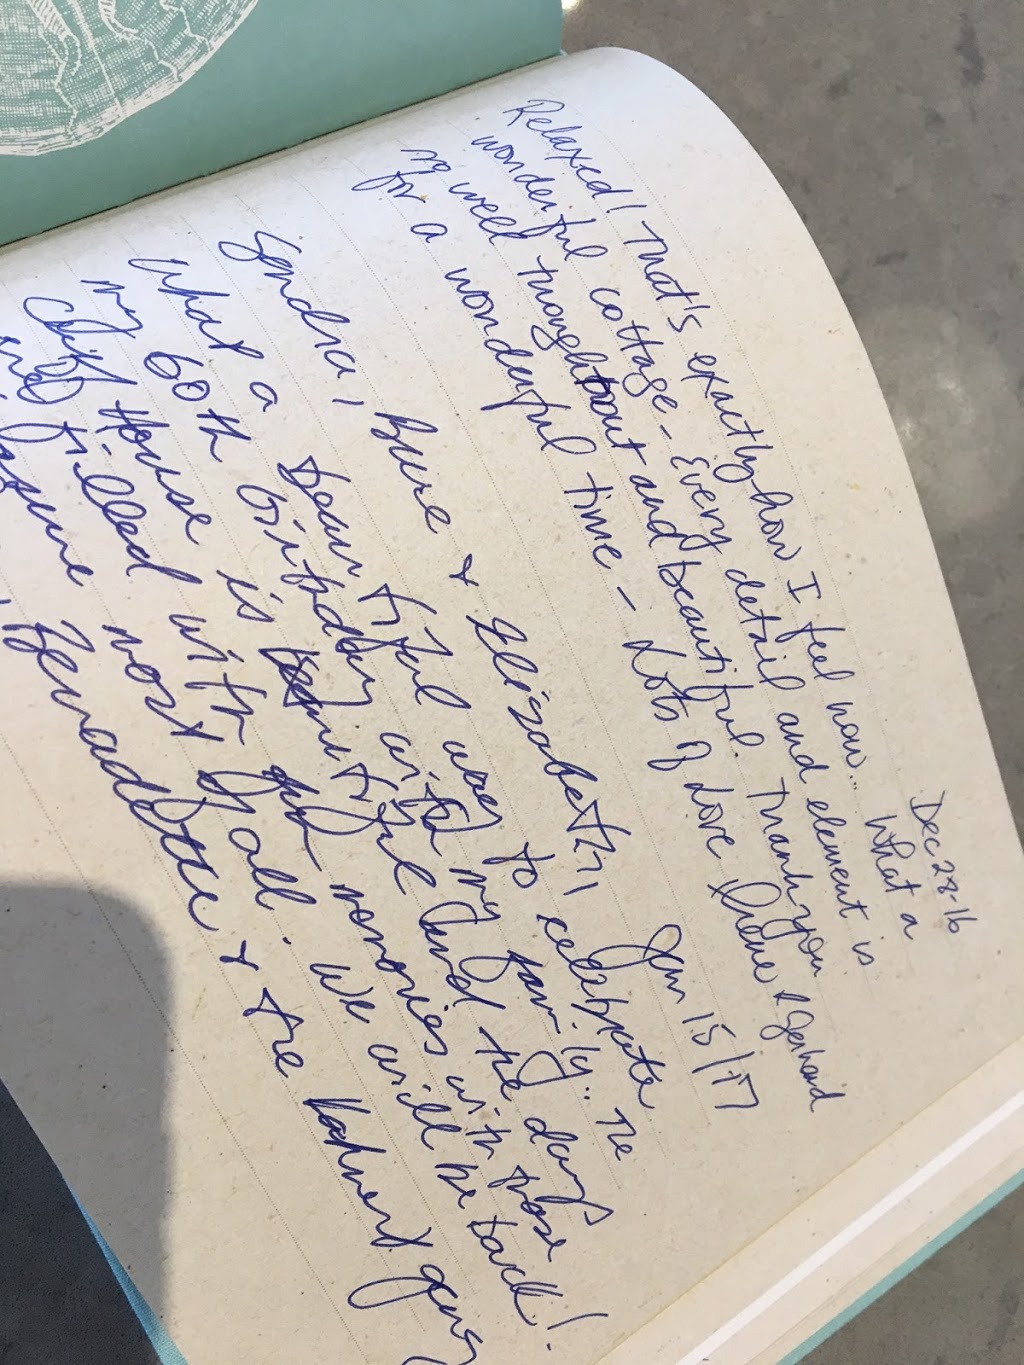 Dec 28-16
Relaxed! That's exactly how I feel now... What a
wonderful cottage - Every detail and element is
so well thought out and beautiful. Thank you
for a wonderful time - Lots of Love & Gerhard
Jan 15/17
Sandra, Bruce & Elizabeth,
What a beautiful way to celebrate
my 60th birthday with my family.. The
Cliff House is beautiful and the days
and filled with memories with those
most of all. We will be back!
Bernadette & the gang